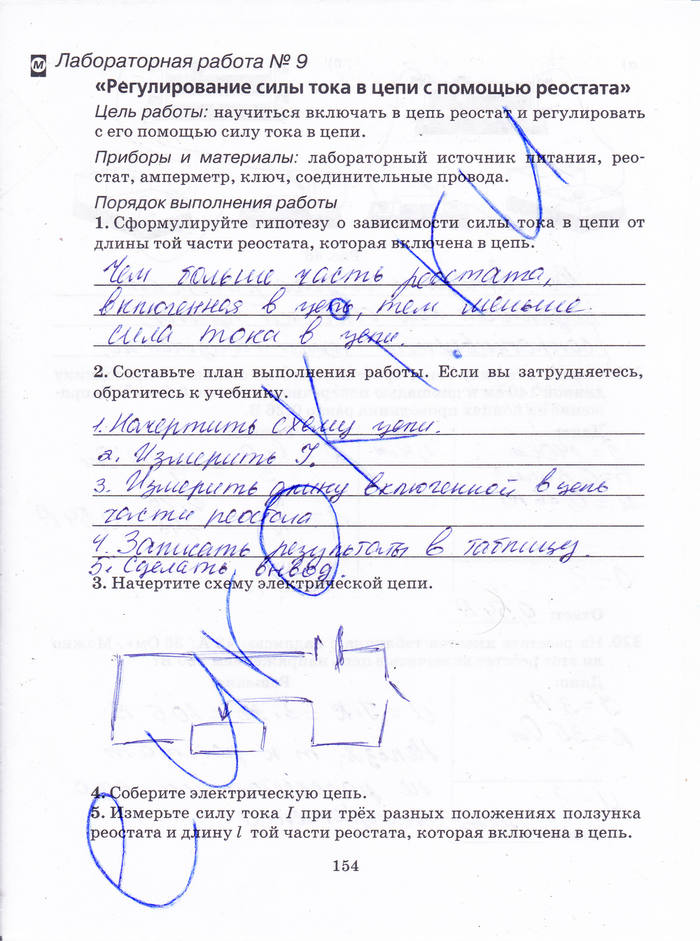 м Лабораторная работа № 9
«Регулирование силы тока в цепи с помощью реостата»
Цель работы: научиться включать в цепь реостат и регулировать
с его помощью силу тока в цепи.
Приборы и материалы: лабораторный источник питания, рео-
стат, амперметр, ключ, соединительные провода.
Порядок выполнения работы
1. Сформулируйте гипотезу о зависимости силы тока в цепи от
длины той части реостата, которая включена в цепь.
Чем больше часть реостата,
включенная в цепь, тем меньше
сила тока в цепи.
2. Составьте план выполнения работы. Если вы затрудняетесь,
обратитесь к учебнику.
1. Начертить схему цепи.
2. Измерить I.
3. Измерить длину включенной в цепь
части реостата
4. Записать результаты в таблицу.
5. Сделать вывод.
3. Начертите схему электрической цепи.
4. Соберите электрическую цепь.
5. Измерьте силу тока I при трёх разных положениях ползунка
реостата и длину l той части реостата, которая включена в цепь.
154